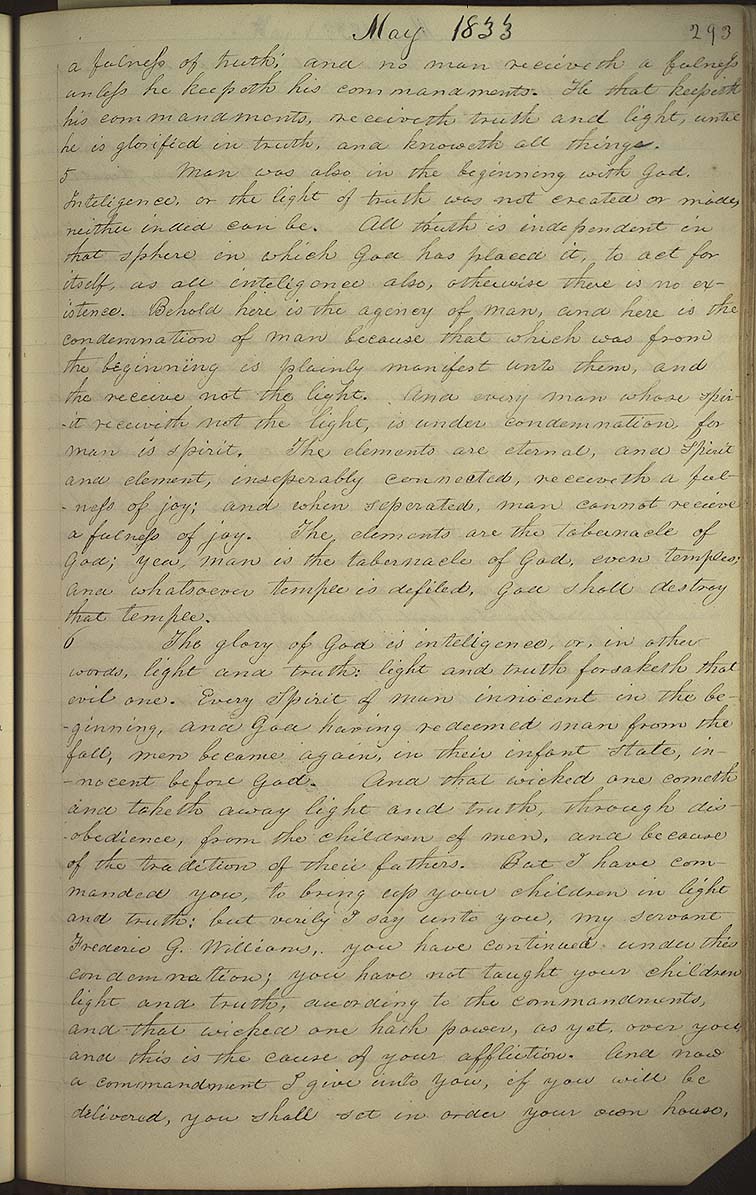 May 1833 293
a fulness of truth; and no man recieveth a fulness
unless he keepeth his commandments. He that keepeth
his commandments, receiveth truth and light, until
he is glorified in truth, and knoweth all things.
5 Man was also in the beginning with God.
Inteligence, or the light of truth was not created or made,
neither inded can be. All truth is independent in
that sphere in which God has placed it, to act for
itself, as all inteligence also, otherwise there is no ex-
istence. Behold here is the agency of man, and here is the
condemnation of man because that which was from
the beginning is plainly manifest unto them, and
the receive not the light. And every man whose spir-
-it receivith not the light, is under condemnation, for
man is spirit. The elements are eternal, and Spirit
and element, inseperably connected, receiveth a ful-
-ness of joy; and when seperated, man cannot recieve
a fulness of joy. The, elements are the tabernacle of
God; yea, man is the tabernacle of God, even temples;
and whatsoever temple is defiled, God shall destroy
that temple.
6 The glory of God is inteligence, or, in other
words, light and truth: light and truth forsaketh that
evil one. Every Spirit of man innocent in the be-
-ginning, and God having redeemed man from the
fall, men became again, in their infant state, in-
-nocent before God. And that wicked one cometh
and taketh away light and truth, through dis-
-obedience, from the children of men, and because
of the tradition of their fathers. But I have com-
manded you, to bring up your children in light
and truth: but verily I say unto you, my servant
Frederic G. Williams, you have continued under this
condemnation; you have not taught your children
light and truth, acording to the commandments,
and that wicked one hath power, as yet, over you,
and this is the cause of your affliction. And now
a commandment I give unto you, if you will be
delivered, you shall set in order your own house,